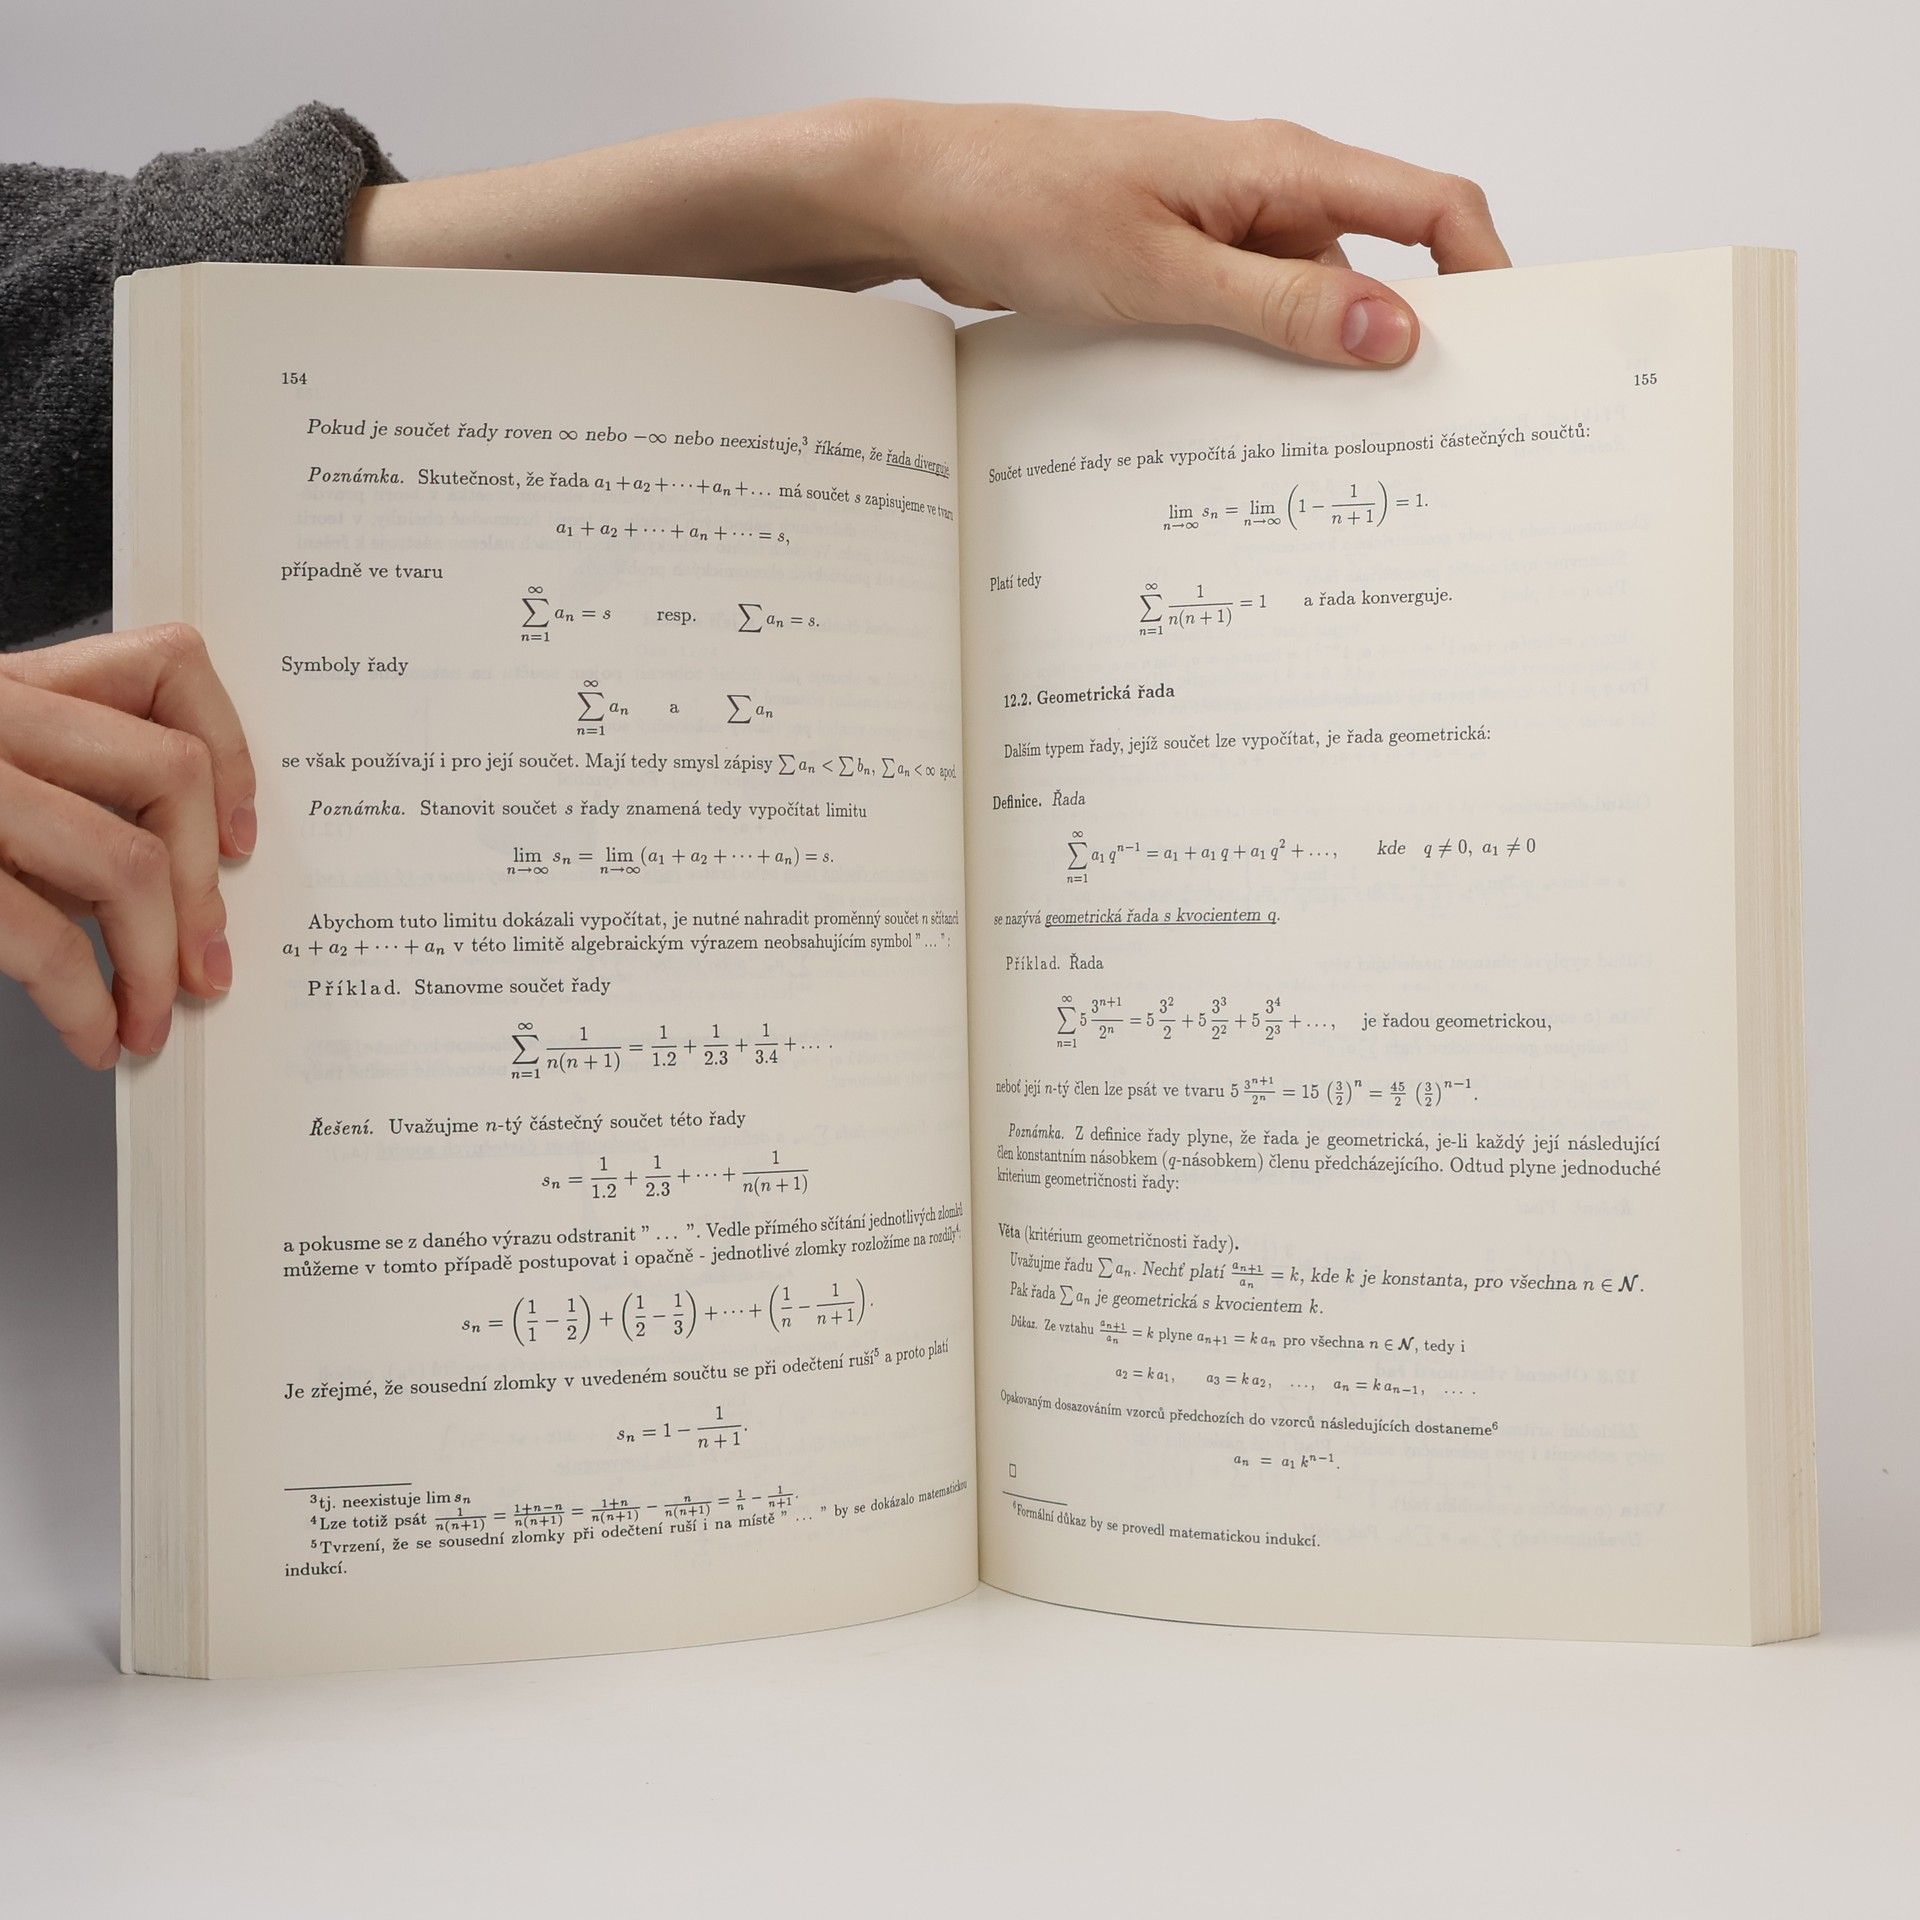 154
Pokud je součet řady roven ∞ nebo −∞ nebo neexistuje,³ říkáme, že řada diverguje.
Poznámka. Skutečnost, že řada a₁+a₂+⋯+aₙ+… má součet s zapisujeme ve tvaru
a₁ + a₂ + ⋯ + aₙ + ⋯ = s,
případně ve tvaru
∑_{n=1}^{∞} aₙ = s resp. ∑ aₙ = s.
Symboly řady
∑_{n=1}^{∞} aₙ a ∑ aₙ
se však používají i pro její součet. Mají tedy smysl zápisy ∑ aₙ < ∑ bₙ, ∑ aₙ < ∞ apod.
Poznámka. Stanovit součet s řady znamená tedy vypočítat limitu
lim_{n→∞} sₙ = lim_{n→∞} (a₁ + a₂ + ⋯ + aₙ) = s.
Abychom tuto limitu dokázali vypočítat, je nutné nahradit proměnný součet n sčítanců
a₁ + a₂ + ⋯ + aₙ v této limitě algebraickým výrazem neobsahujícím symbol ” … ”:
Příklad. Stanovme součet řady
∑_{n=1}^{∞} 1/(n(n+1)) = 1/1.2 + 1/2.3 + 1/3.4 + … .
Řešení. Uvažujme n-tý částečný součet této řady
sₙ = 1/1.2 + 1/2.3 + ⋯ + 1/(n(n+1))
a pokusme se z daného výrazu odstranit ” … ”. Vedle přímého sčítání jednotlivých zlomků
můžeme v tomto případě postupovat i opačně - jednotlivé zlomky rozložíme na rozdíly⁴:
sₙ = (1/1 − 1/2) + (1/2 − 1/3) + ⋯ + (1/n − 1/(n+1)).
Je zřejmé, že sousední zlomky v uvedeném součtu se při odečtení ruší⁵ a proto platí
sₙ = 1 − 1/(n+1).
³tj. neexistuje lim sₙ
⁴Lze totiž psát 1/(n(n+1)) = (1+n−n)/(n(n+1)) = (1+n)/(n(n+1)) − n/(n(n+1)) = 1/n − 1/(n+1).
⁵Tvrzení, že se sousední zlomky při odečtení ruší i na místě ” … ” by se dokázalo matematickou
indukcí.
155
Součet uvedené řady se pak vypočítá jako limita posloupnosti částečných součtů:
lim_{n→∞} sₙ = lim_{n→∞} (1 − 1/(n+1)) = 1.
Platí tedy
∑_{n=1}^{∞} 1/(n(n+1)) = 1 a řada konverguje.
12.2. Geometrická řada
Dalším typem řady, jejíž součet lze vypočítat, je řada geometrická:
Definice. Řada
∑_{n=1}^{∞} a₁ qⁿ⁻¹ = a₁ + a₁ q + a₁ q² + …, kde q ≠ 0, a₁ ≠ 0
se nazývá geometrická řada s kvocientem q.
Příklad. Řada
∑_{n=1}^{∞} 5 3ⁿ⁺¹/2ⁿ = 5 3²/2 + 5 3³/2² + 5 3⁴/2³ + …, je řadou geometrickou,
neboť její n-tý člen lze psát ve tvaru 5 3ⁿ⁺¹/2ⁿ = 15 (3/2)ⁿ = 45/2 (3/2)ⁿ⁻¹.
Poznámka. Z definice řady plyne, že řada je geometrická, je-li každý její následující
člen konstantním násobkem (q-násobkem) členu předcházejícího. Odtud plyne jednoduché
kriterium geometričnosti řady:
Věta (kritérium geometričnosti řady).
Uvažujme řadu ∑ aₙ. Nechť platí aₙ₊₁/aₙ = k, kde k je konstanta, pro všechna n ∈ N.
Pak řada ∑ aₙ je geometrická s kvocientem k.
Důkaz. Ze vztahu aₙ₊₁/aₙ = k plyne aₙ₊₁ = k aₙ pro všechna n ∈ N, tedy i
a₂ = k a₁, a₃ = k a₂, …, aₙ = k aₙ₋₁, … .
Opakovaným dosazováním vzorců předchozích do vzorců následujících dostaneme⁶
aₙ = a₁ kⁿ⁻¹.
□
⁶Formální důkaz by se provedl matematickou indukcí.